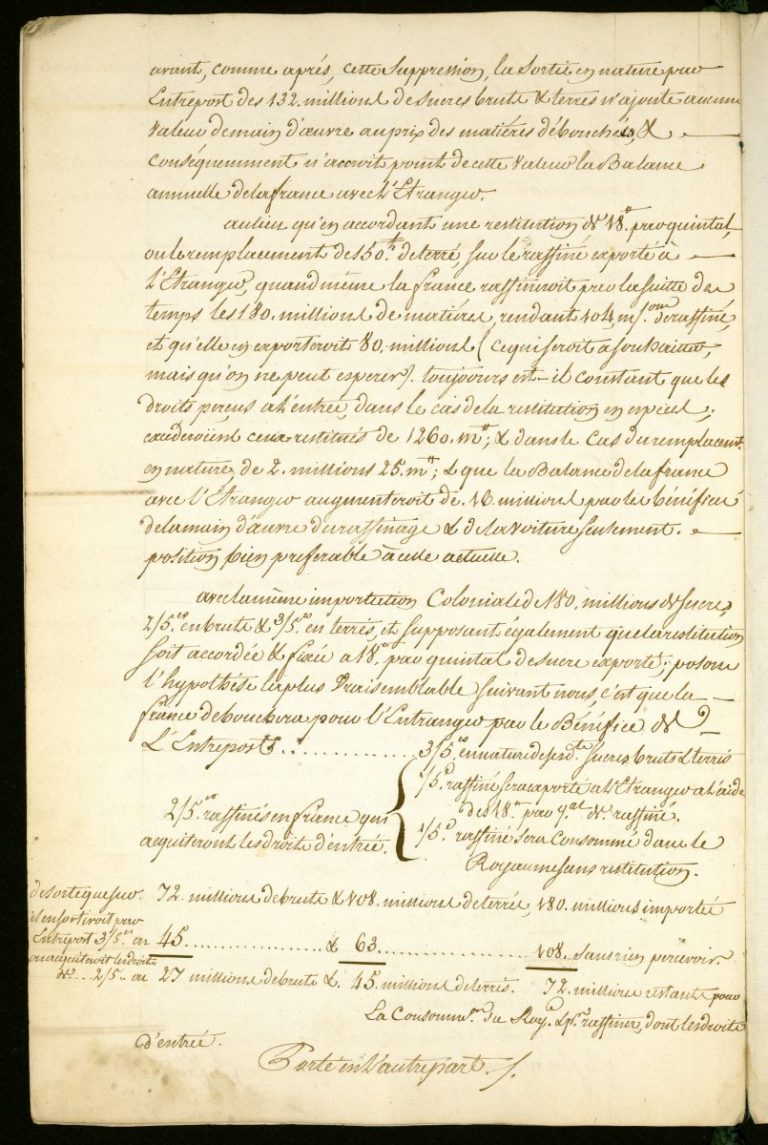 avant, comme aprés, cette Suppression, la Sortie en nature par
Entrepost des 132. millions de Sucres bruts & terrés n'ajoute aucune
Valeur de main d'œuvre au prix des matiéres débouchées, &
conséquemment n'accroit point de cette Valeur la Balance
annuelle de la france avec l'Etranger.
au lieu qu'en accordant une restitution de 18.# par quintal,
ou le remplacement de 150.# de terré, sur le raffiné exporté à
l'Etranger, quand même la france raffineroit par la suitte des
temps les 180. millions de matiéres, rendant 104, m.ons de raffiné,
et qu'elle en exporteroit 80. millions (ce qui seroit a souhaitter,
mais qu'on ne peut esperer). toujours est-il constant que les
droits perçus a l'entrée, dans le cas de la restitution en espéces,
excederoient ceux restitués de 1260. m#; & dans le cas du remplacemt.
en nature, de 2. millions 25. m#; & que la Balance de la france
avec l'Etranger augmenteroit de 16 millions par le bénéfice
de la main d'œuvre du raffinage & de la voiture seulement.
position bien preferable à celle actuelle.
avec la même importation Coloniale de 180. millions de Sucre,
2/5.es en bruts & 3/5.es en terrés, et supposant également que la restitution
soit accordée & fixée a 18# par quintal de sucre exporté; posons
l'hypothése la plus Vraisemblable suivant nous, c'est que la
france debouchera pour l'Entranger par le Bénéfice de
L'Entrepost . . . . . . . . . . . . 3/5.es en nature desd. Sucres bruts & terrés
1/5.e raffiné sera exporté a l'Etranger a l'aide
des 18# par q.al de raffiné.
2/5.es raffinés en france qui
acquiteront les droits d'entrée.
1/5.e raffiné sera Consommé dans le
Royaume sans restitution.
de sorte que sur 72. millions de bruts & 108. millions de terrés, 180. millions importés
il en sortiroit par
Entrepost 3/5.es ou 45 . . . . . . . . . . & 63. . . . . . . . . . . . 108. sans rien percevoir.
on acquiteroit les droits
de . . . 2/5.. ou 27 millions de bruts &. 45. millions de terrés. 72. millions restants pour
La Consomm.on du Roy.e & p.r raffiner, dont les droits
d'entrée.
Porté en l'autre part. /.